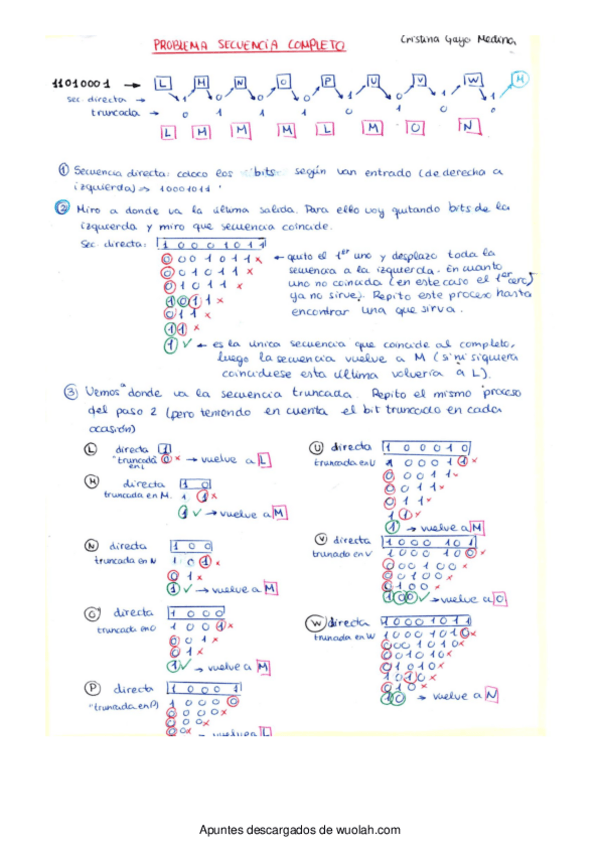 PROBLEMA SECUENCIA COMPLETO
Cristina Gayo Medina
11010001 → L M N O P U V W M
sec. directa → 1 0 0 0 1 0 1 1
truncada → 0 1 1 1 0 1 0 0
L M M M L M O N
① Secuencia directa: coloco los "bits" según van entrado (de derecha a
izquierda) => 10001011
② Miro a donde va la última salida. Para ello voy quitando bits de la
izquierda y miro que secuencia coincide.
Sec. directa: 1 0 0 0 1 0 1 1
0 0 0 1 0 1 1 x ← quito el 1er uno y desplazo toda la
0 0 1 0 1 1 x secuencia a la izquierda. En cuanto
0 1 0 1 1 x uno no coincida (en este caso el 1er cero)
1 0 1 1 x ya no sirve. Repito este proceso hasta
0 1 1 x encontrar una que sirva.
1 1 x
1 ✓ ← es la única secuencia que coincide al completo,
luego la secuencia vuelve a M (si ni siquiera
coincidiese esta última volvería a L).
③ Vemos a donde va la secuencia truncada. Repito el mismo proceso
del paso 2 (pero teniendo en cuenta el bit truncado en cada
ocasión)
L directa 1
"truncada en L 0 x → vuelve a L
M directa 1 0
truncada en M. 1 1 x
1 ✓ → vuelve a M
N directa 1 0 0
truncada en N 1 0 1 x
0 1 x
1 ✓ → vuelve a M
O directa 1 0 0 0
truncada en O 1 0 0 1 x
0 0 1 x
0 1 x
1 ✓ → vuelve a M
P directa 1 0 0 0 1
"truncada en P) 1 0 0 0 0
0 0 0 0 x
0 0 0 x
0 0 x → vuelve a L
U directa 1 0 0 0 1 0
truncada en U 1 0 0 0 1 1 x
0 0 0 1 1 x
0 0 1 1 x
0 1 1 x
1 1 x
1 → vuelve a M
V directa 1 0 0 0 1 0 1
truncado en V 1 0 0 0 1 0 0 x
0 0 0 1 0 0 x
0 0 1 0 0 x
0 1 0 0 x
1 0 0 ✓ → vuelve a O
W directa 1 0 0 0 1 0 1 1
truncada en W 1 0 0 0 1 0 1 0 x
0 0 0 1 0 1 0 x
0 0 1 0 1 0 x
0 1 0 1 0 x
1 0 1 0 x
0 1 0 x
1 0 → vuelve a N
Apuntes descargados de wuolah.com